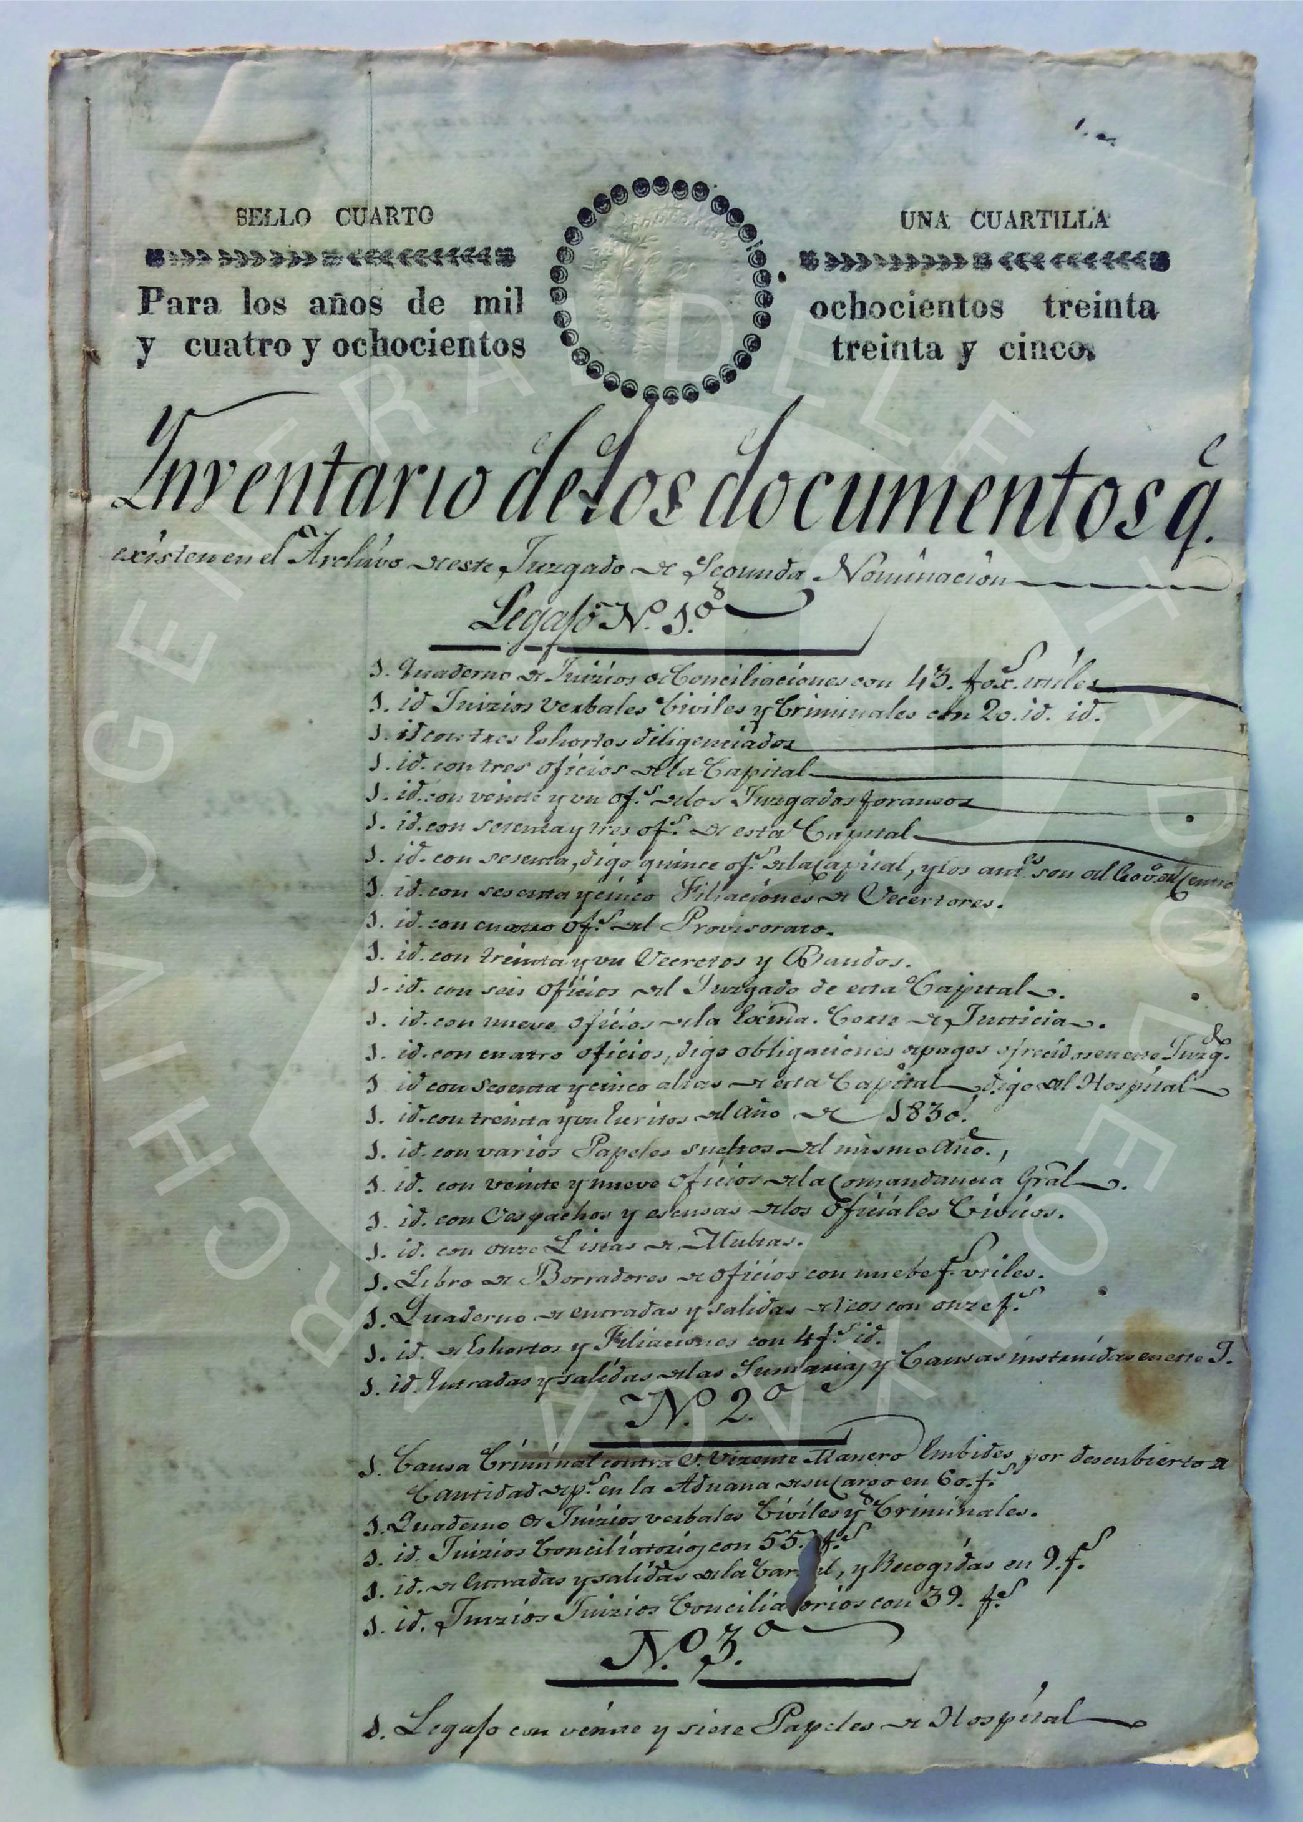 SELLO CUARTO
UNA CUARTILLA
Para los años de mil ochocientos treinta
y cuatro y ochocientos treinta y cinco.
Ynventario de los documentos q.e
existen en el Archivo de este Juzgado de Segunda Nominación
Legajo N.o 1.o
1. Quaderno de Juizios de Conciliaciones con 43. fox.s utiles
1. id Juizios verbales Civiles y Criminales con 20. id. id.
1. id con tres Eshortos diligenciados
1. id. con tres oficios de la Capital
1. id. con veinte y un of.s de los Juzgados foraneos
1. id. con setenta y tres of.s de esta Capital
1. id. con sesenta, digo quince of.s de la Capital, y los ant.es son del Gov.o del Centro
1. id. con sesenta y cinco Filiaciones de Decertores.
1. id. con cuatro of.s del Provisorato.
1. id. con treinta y un Decretos y Bandos.
1. id. con seis oficios del Juzgado de esta Capital.
1. id. con nueve oficios de la Excma. Corte de Justicia.
1. id. con cuatro oficios, digo obligaciones de pagos ofrecidos en este Juzg.do
1. id con secenta y cinco altas de esta Capital, digo del Hospital
1. id. con treinta y un Escritos del Año de 1830.
1. id. con varios Papeles sueltos del mismo Año.
1. id. con veinte y nueve oficios de la Comandancia Gral.
1. id. con Despachos y escusas de los Oficiales Civicos.
1. id. con once Listas de Multas.
1. Libro de Borradores de oficios con nuebe f.s utiles.
1. Quaderno de entradas y salidas de reos con onze f.s
1. id. de Eshortos y Filiaciones con 4 f.s id.
1. id. Entradas y salidas de las Sumarias y Causas instruidas en este J.
N.o 2.o
1. Causa Criminal contra D. Vizente Manero Embides, por descubierto de
Cantidad de p.s en la Aduana de su cargo en 60. f.s
1. Quaderno de Juizios verbales Civiles y Criminales.
1. id. Juizios Conciliatorios con 55. f.s
1. id. de Entradas y salidas de la Carcel, y Recogidas en 9. f.s
1. id. Juizios Juizios Conciliatorios con 39. f.s
N.o 3.o
1. Legajo con veinte y siete Papeles de Hospital
ARCHIVO GENERAL DEL ESTADO DE OAXACA